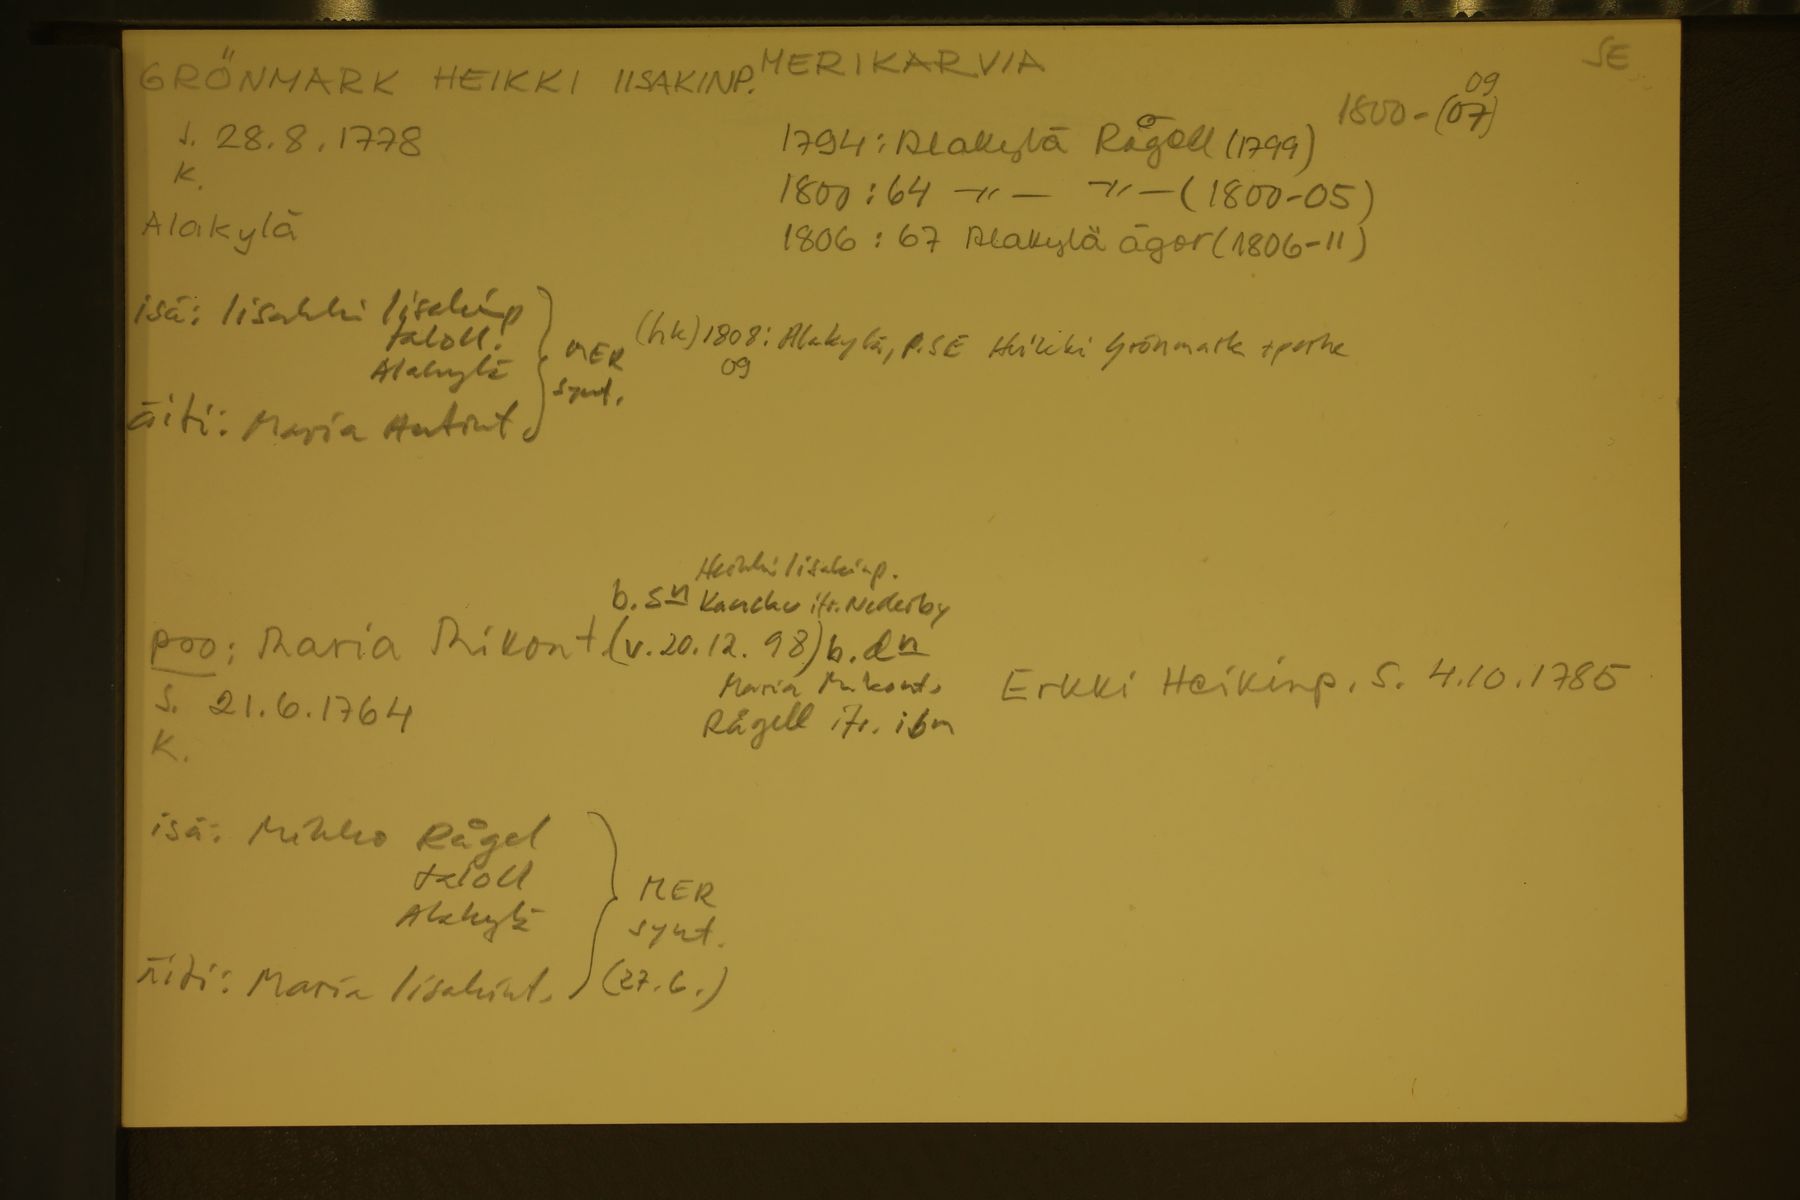 GRÖNMARK HEIKKI IISAKINP. MERIKARVIA SE
s. 28.8.1778
k.
Alakylä
1800-(07)
09
1794: Alakylä Rågell (1799)
1800: 64 -"- -"- (1800-05)
1806: 67 Alakylä ägor (1806-11)
isä: Iisakki Iisakinp
taloll.
Alakylä
äiti: Maria Antint.
MER
synt.
(hk) 1808: Alakylä, P.SE Heikki Grönmark +perhe
09
Heikki Iisakinp.
b. sn ifr. Nederby
poo: Maria Mikont. (v. 20.12.98) b. dn
s. 21.6.1764
k.
Maria Mikont.
Rågell ifr. ibm
Erkki Heikinp. s. 4.10.1785
isä: Mikko Rågel
taloll
Alakylä
äiti: Maria Iisakint.
MER
synt.
(27.6.)